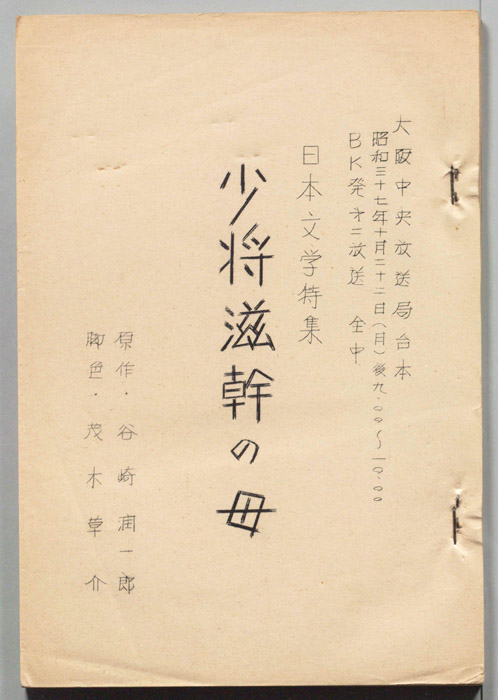 大阪中央放送局台本
昭和三十七年十月二十二日(月)後九.00~一0.00
BK発才二放送 全中
日本文学特集
少将滋幹の母
原作・谷崎潤一郎
脚色・茂木草介